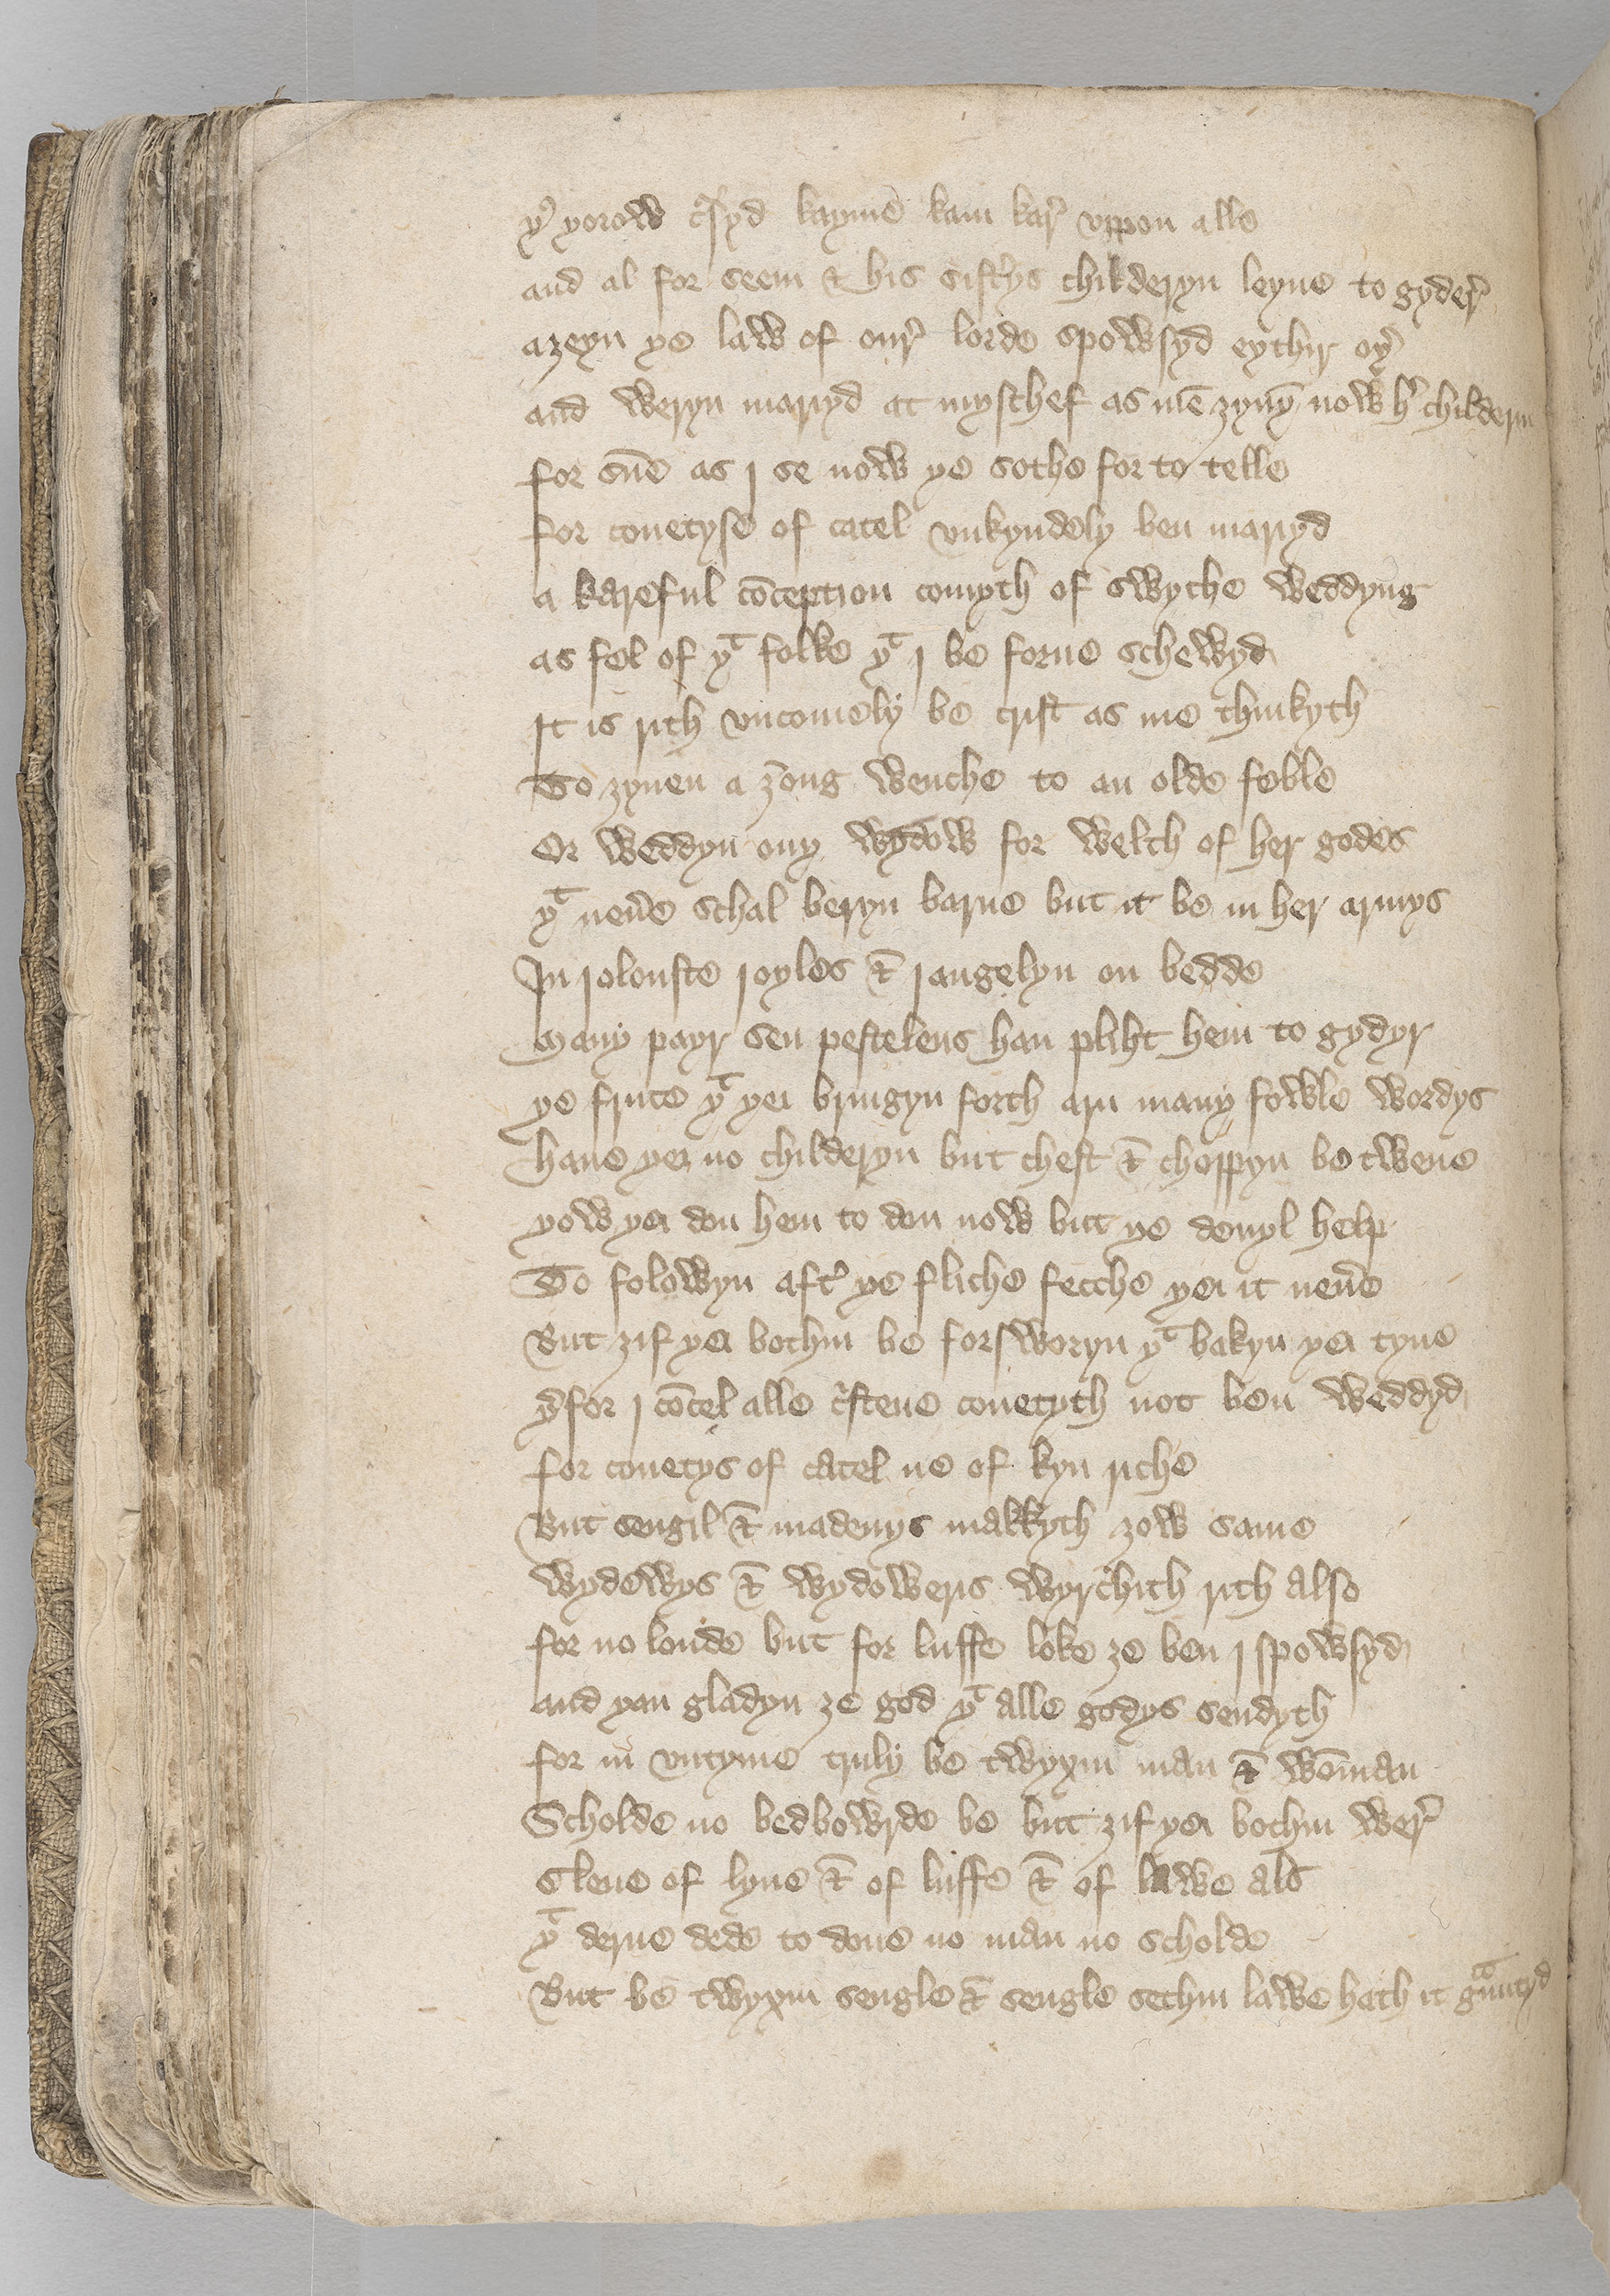 yͬ yorow cͬsyd kayme kam karͬ vppon alle
and al for seem & his sistͬys childeryn leyne to gyderͬ
azeyn ye law of ourͬ lorde spowsyd eythir oyͬ
and weryn maryid at myschef as mē zyuyͬ now hͬ childern
for sūe as j se now ye sothe for to telle
for couetyse of catel vnkyndely ben maryid
a kareful cōception comyth of swyche weddyng
as fel of yᵗ folke yᵗ j be forne schewyd
It is rith vncomely be crist as me thinkyth
To zyuen a zong wenche to an olde feble
Or weddyn ony wydow for welth of her godes
yᵗ neuͬe schal beryn barne but it be in her armys
In jelouste joyles & jangelyn on bedde
Many payr sen pestelens han pliht hem to gydyr
ye frute yᵗ yei bringyn forth arn many fowle wordys
haue yei no childeryn but chest & choppyn be twene
yow yei don hem to don now but ye deuyl help
To folowyn aftͬ ye fliche fecche yei it neuͬe
But zif yei bothin be forsworyn yᵗ bakyn yei tyne
yͬfor j cōcel alle cͬstene couetyth not ben weddyd
for couetys of catel ne of kyn riche
But sengil & madenys makkyth zow same
wydewys & wydoweris wyrchith rith also
for no londe but for luffe loke ze ben j spowsyd
and yan gladyn ze god yᵗ alle godys sendyth
for in vntyme truly be twyxin man & wōman
Scholde no bedbowrde be but zif yei bothin werͬ
Clene of lyue & of luffe & of lawe als
yᵗ derne dede to done no man no scholde
But be twyxin sengle & sengle sethin lawe hath it gᵃuntyd